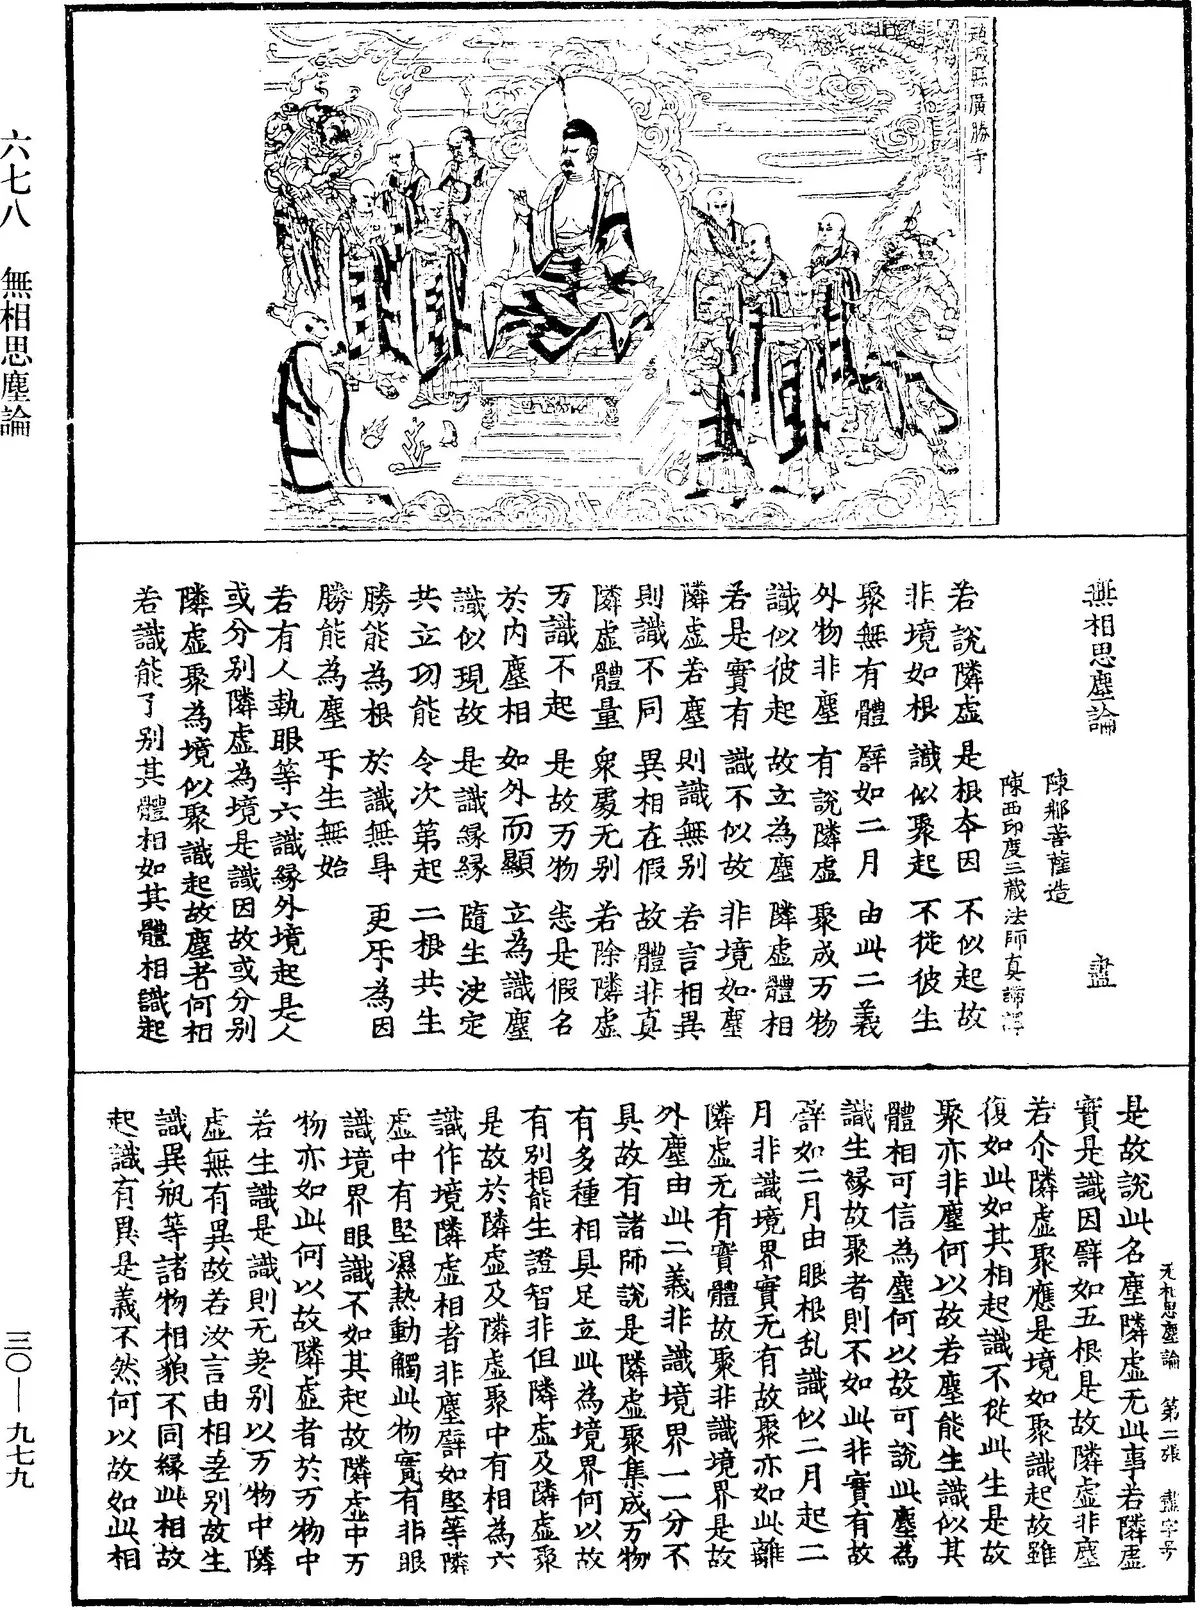 六七八 無相思塵論
三〇—九七九
趙城縣廣勝寺
無相思塵論 盡
陳那菩薩造
陳西印度三藏法師真諦譯
若說隣虛 是根夲因 不似起故
非境如根 識似聚起 不従彼生
聚無有體 譬如二月 由此二義
外物非塵 有說隣虛 聚成万物
識似彼起 故立為塵 隣虛體相
若是實有 識不似故 非境如塵
隣虛若塵 則識無别 若言相異
則識不同 異相在假 故體非真
隣虛體量 衆處无别 若除隣虛
万識不起 是故万物 悉是假名
於内塵相 如外而顯 立為識塵
識似現故 是識縁縁 隨生决定
共立功能 令次第起 二根共生
勝能為根 於識無㝵 更㸦為因
勝能為塵 㸦生無始
若有人執眼等六識縁外境起是人
或分别隣虛為境是識因故或分别
隣虛聚為境似聚識起故塵者何相
若識能了别其體相如其體相識起
无相思塵論 第二張 盡字号
是故說此名塵隣虛无此事若隣虛
實是識因譬如五根是故隣虛非塵
若尒隣虛聚應是境如聚識起故雖
復如此如其相起識不従此生是故
聚亦非塵何以故若塵能生識似其
體相可信為塵何以故可說此塵為
識生縁故聚者則不如此非實有故
譬如二月由眼根乱識似二月起二
月非識境界實无有故聚亦如此離
隣虛无有實體故聚非識境界是故
外塵由此二義非識境界一一分不
具故有諸師說是隣虛聚集成万物
有多種相具足立此為境界何以故
有别相能生證智非但隣虛及隣虛聚
是故於隣虛及隣虛聚中有相為六
識作境隣虛相者非塵譬如堅等隣
虛中有堅濕熱動觸此物實有非眼
識境界眼識不如其起故隣虛中万
物亦如此何以故隣虛者於万物中
若生識是識則无差别以万物中隣
虛無有異故若汝言由相差别故生
識異瓶等諸物相貌不同縁此相故
起識有異是義不然何以故如此相